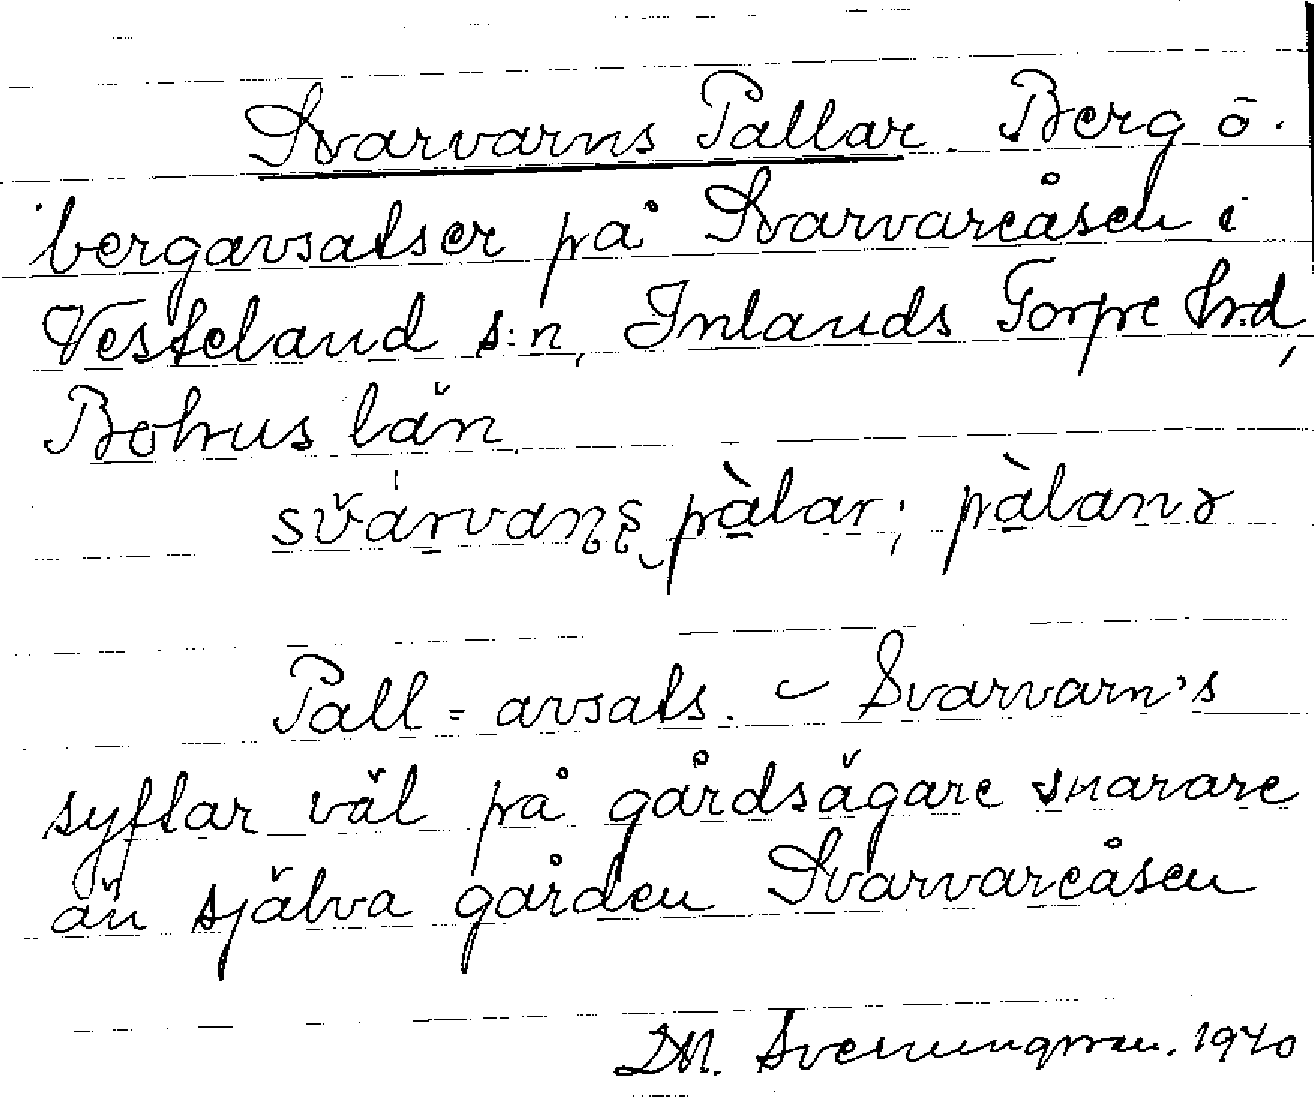 Svarvarns Pallar. Berg o.
bergavsatser på Svarvareåsen i
Vesterland s:n, Inlands Torpe hrd,
Bohus län.
pàlar; pàlanɤ
Pall = avsats. – Svarvarn's
syftar väl på gårdsägare snarare
än själva gården Svarvareåsen
DM. 1940